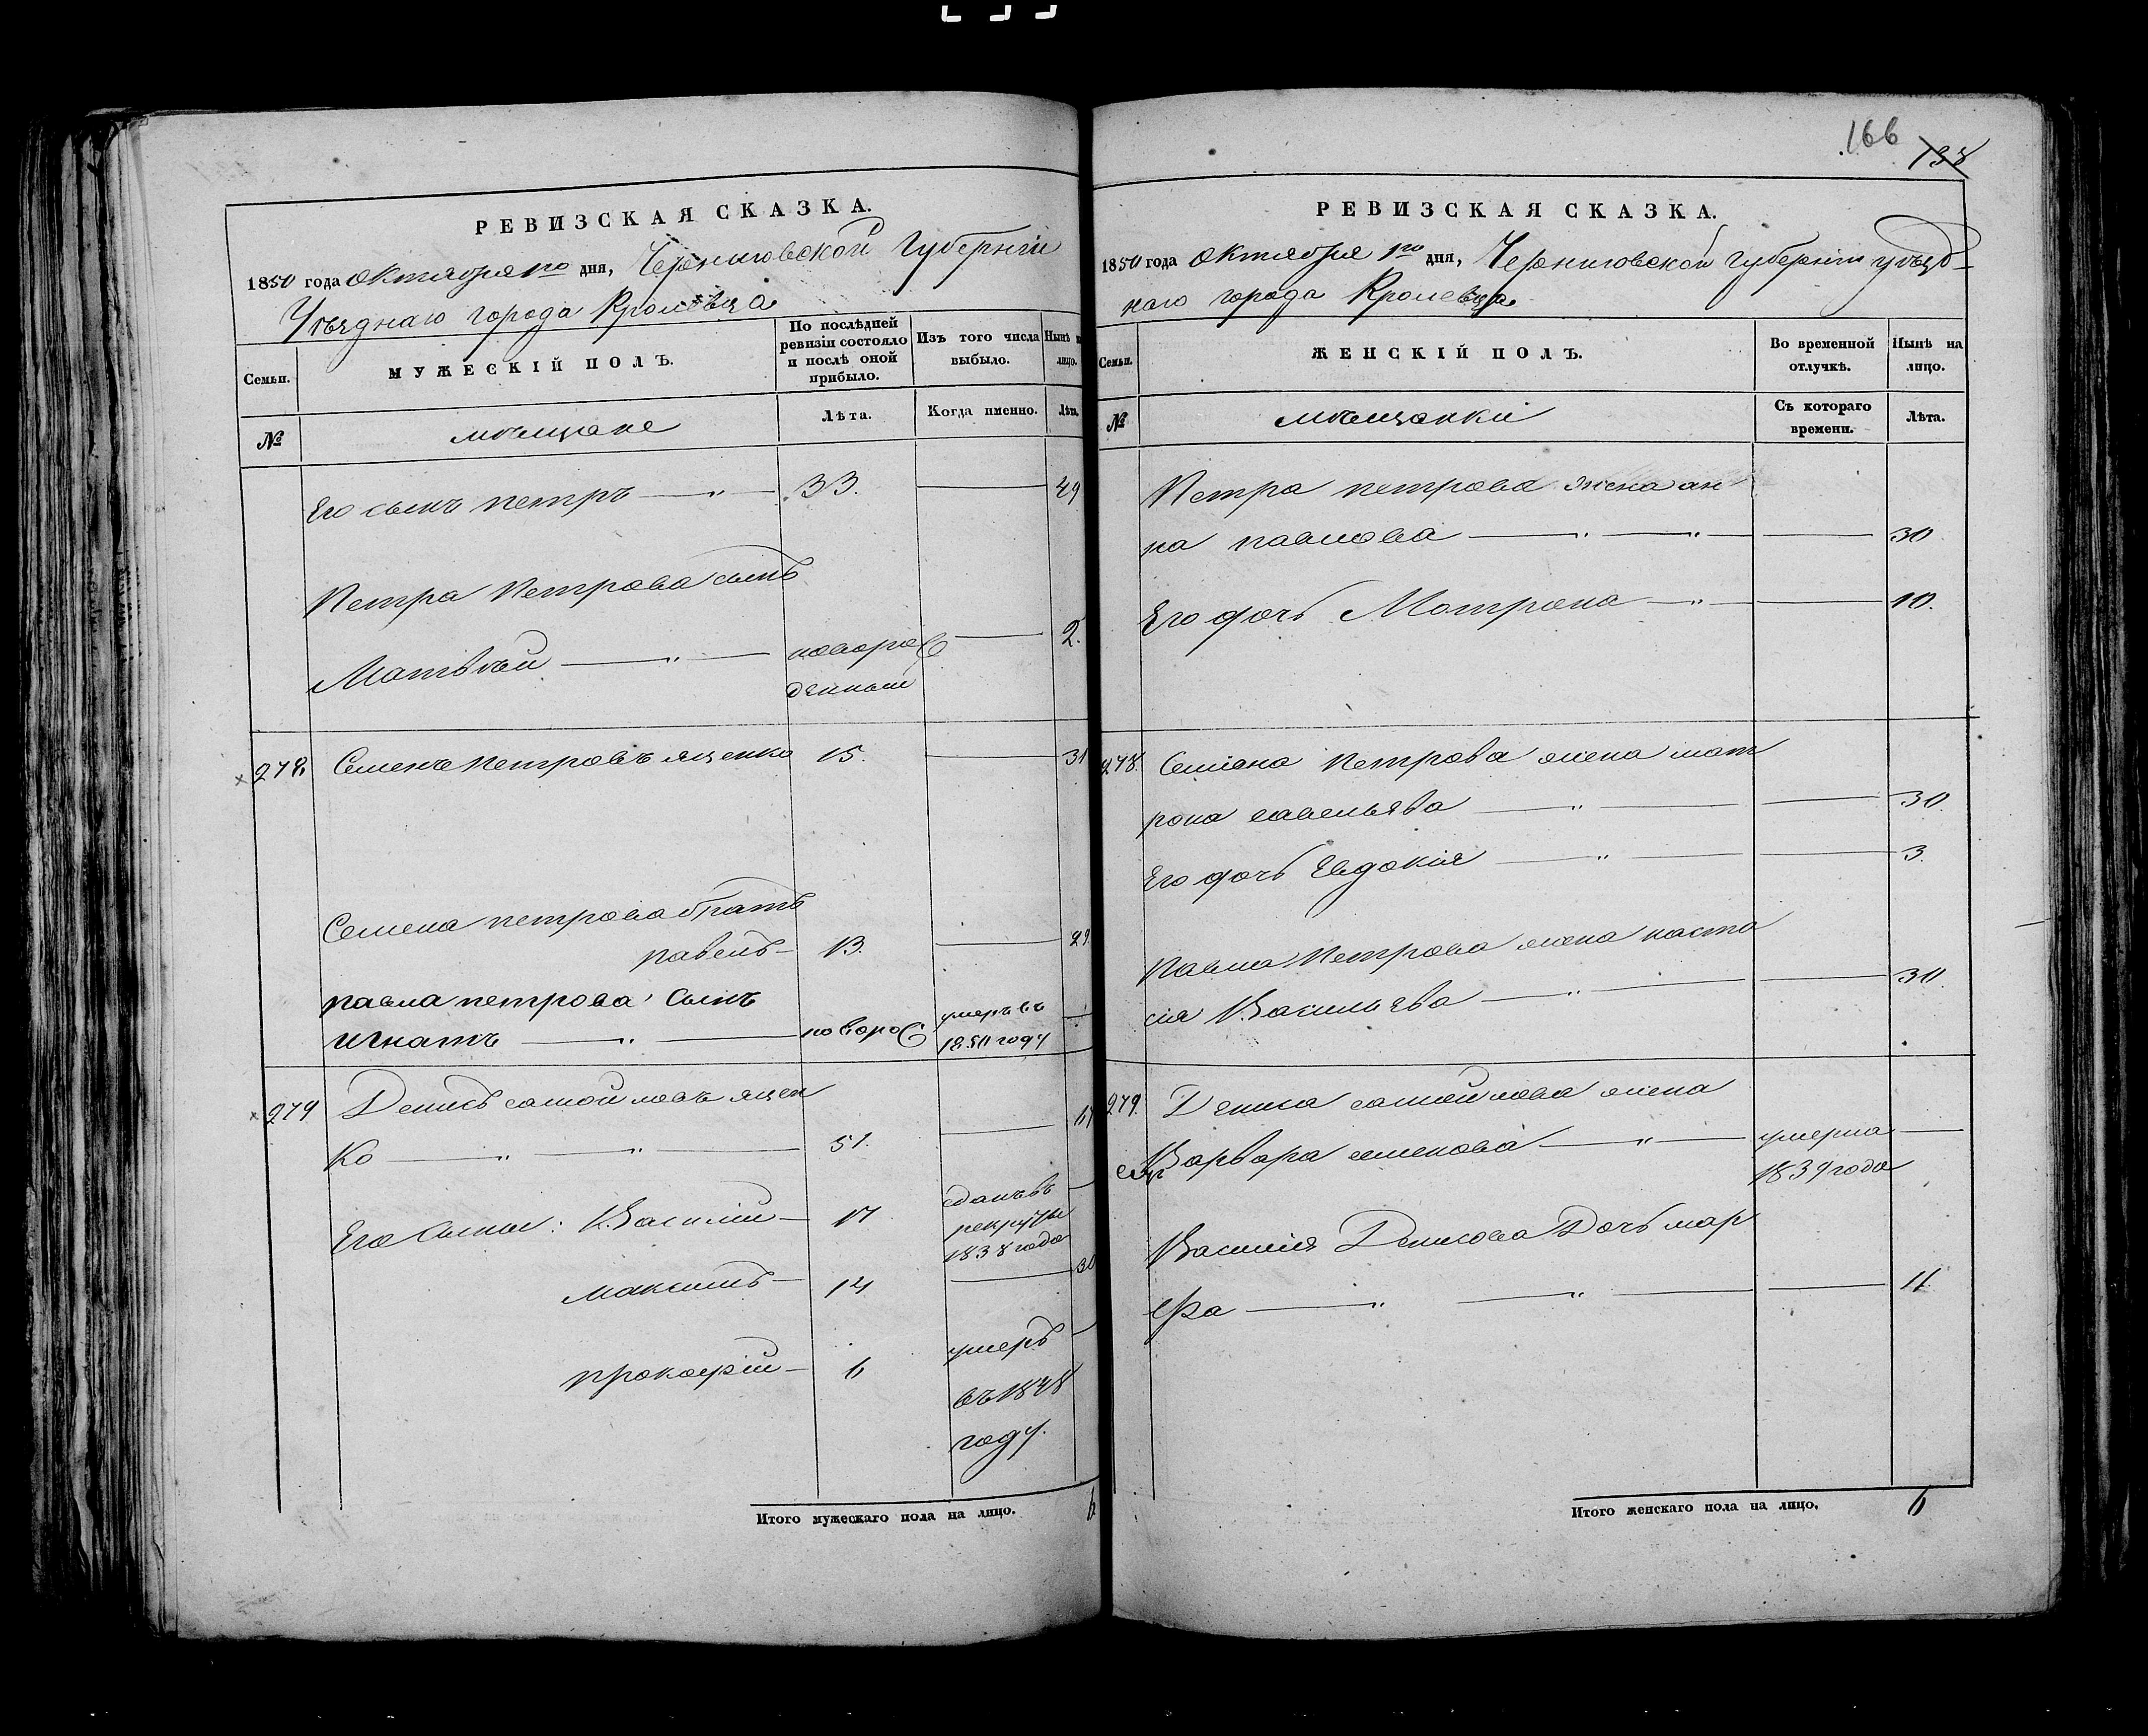 166
138
РЕВИЗСКАЯ СКАЗКА.
1850 года Октября 1го дня, Черниговской Губерніи
Уѣзднаго города Кролевца
Семьи.
МУЖЕСКІЙ ПОЛЪ.
По послѣдней ревизіи состояло и послѣ оной прибыло.
Изъ того числа выбыло.
Нынѣ на лицо.
№
мѣщане
Лѣта.
Когда именно.
Лѣта.
Его сынъ петръ — 33. — 49
Петра Петрова сынъ
Матвѣй — новорож — 2.
денный
278. Семенъ Петровъ яценко 15. — 31
Семена петрова братъ
павелъ — 13. — 29.
павла петрова сынъ
игнатъ — новорож умеръ въ —
1850 году
279 Денисъ самойловъ яцен
ко — 51. — 67
Его сыны: Василій — 17 сданъ въ —
рекруты
1838 года
максимъ — 14 — 30
прокофій — 6 умеръ —
въ 1848
году.
Итого мужескаго пола на лицо. 6
РЕВИЗСКАЯ СКАЗКА.
1850 года Октября 1го дня, Черниговской Губерніи уѣзд-
наго города Кролевца.
Семьи.
ЖЕНСКІЙ ПОЛЪ.
Во временной отлучкѣ.
Нынѣ на лицо.
№
мѣщанки
Съ котораго времени.
Лѣта.
Петра петрова жена ан
на павлова — 30
Его дочь Мотрона — 10.
278. Семена Петрова жена мат
рона савельева — 30.
Его дочь Евдокія — 3.
Павла Петрова жена наста
сія Васильева — 30.
279. Дениса самойлова жена
Варвара семенова — умерла —
1839 года
Василія Денисова Дочь мар
фа — 11
Итого женскаго пола на лицо. 6